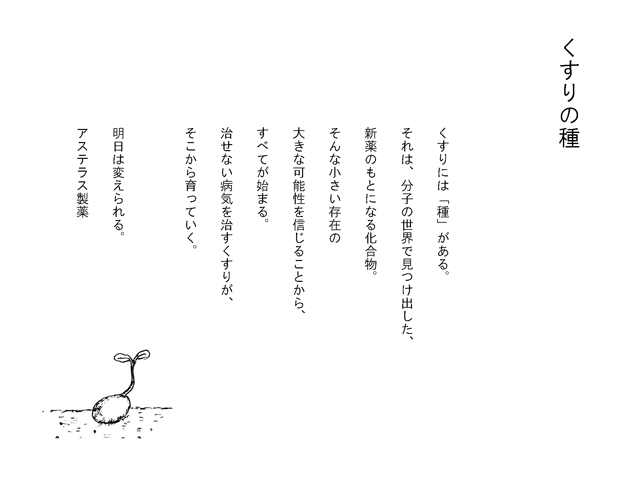 くすりの種
くすりには「種」がある。
それは、分子の世界で見つけ出した、
新薬のもとになる化合物。
そんな小さい存在の
大きな可能性を信じることから、
すべてが始まる。
治せない病気を治すくすりが、
そこから育っていく。
明日は変えられる。
アステラス製薬